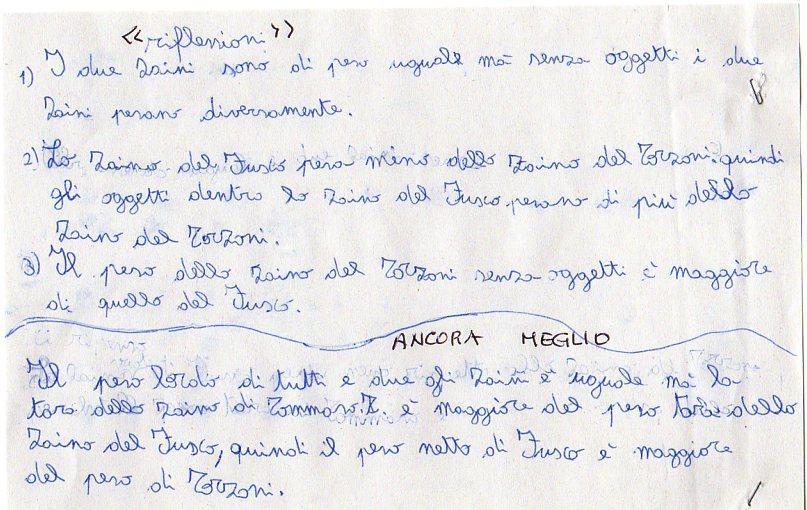 <<riflessioni>>
1) I due zaini sono di peso uguale ma senza oggetti i due
zaini pesano diversamente.
2) Lo zaino del Fusco pesa meno dello zaino del Torzoni: quindi
gli oggetti dentro lo zaino del Fusco pesano di più dello
zaino del Torzoni.
3) Il peso dello zaino del Torzoni senza oggetti è maggiore
di quello del Fusco.
ANCORA MEGLIO
Il peso lordo di tutti e due gli zaini è uguale ma la
tara dello zaino di Tommaso.Z. è maggiore del peso tara dello
zaino del Fusco, quindi il peso netto di Fusco è maggiore
del peso di Torzoni.